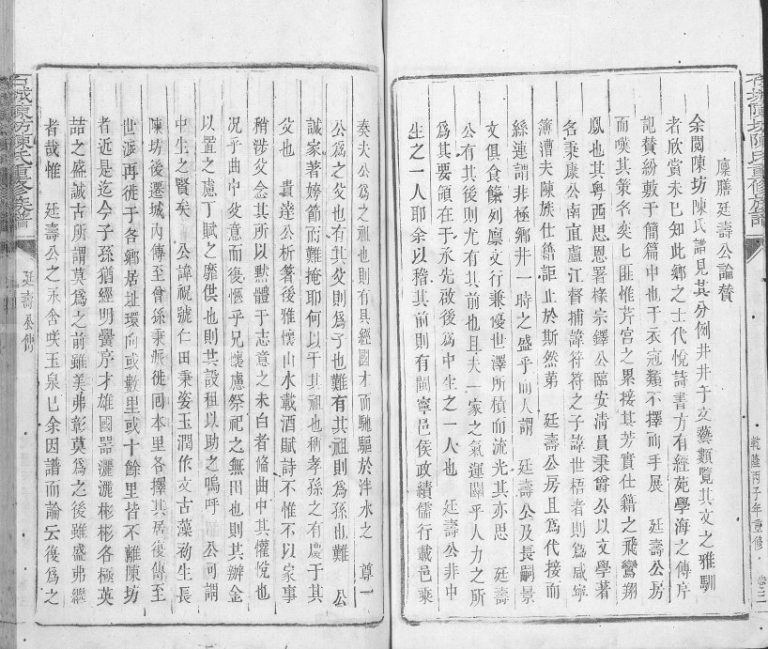 石城陳坊陳氏重修族譜
乾隆丙子年重修
卷之二
廩膳廷壽公論贊
余閱陳坊陳氏譜見其分例井井于文藝類覽其文之雅馴
者欣賞未已知此鄉之士代悅詩書方有經苑學海之傳序
記贊紛數于簡篇中也于衣冠類不擇而手展 廷壽公房
而嘆其策名奕匕匪惟芹宮之累接其芳實仕籍之飛鸞翔
鳳也其粵西思恩署篆宗鐸公臨安清員秉爵公以文學著
名秉康公南直廬江督捕諱符符之子諱世梧者則爲咸寧
簿漕夫陳族仕籍詎止於斯然第 廷壽公房且爲代接而
絲連謂非極鄉井一時之盛乎而人謂 廷壽公及長嗣景
文俱食餼列廩文行兼優也澤所積而流光其亦思 廷壽
公有其後則尤有其前也且夫一家之氣運關乎人力之所
爲其要領在于承先啟後爲中生之一人也 廷壽公非中
生之一人耶余以稽其前則有閩寧邑侯政績儒行載邑乘
石城陳坊陳氏重修族譜
廷壽公傳
奏夫公爲之祖也則有具經國才而馳驅於泮水之 尊一
公爲之父也有其父則爲子也難有其祖則爲孫也難 公
誠家著嫮節而難掩耶何以于其祖也稱孝孫之有慶于其
父也 貴達公析箸後雅懷山水載酒賦詩不惟不以家事
稍涉父念其所以黙體于志意之未白者脩曲中其懽悅也
况乎曲中父意而復愜乎兄懷慮祭祀之無田也則其辦金
以置之慮丁賦之靡供也則其設租以助之嗚呼 公可謂
中生之賢矣 公諱祝號仁田秉姿玉潤作文古藻初生長
陳坊後遷城內傳至曾孫秉 徙同本里各擇其居後傳至
世 再徙于各鄉居址環向或數里或十餘里皆不離陳坊
者近是迄今子孫猶經明黌序才雄國器灑灑彬彬各極英
喆之盛誠古所謂莫爲之前雖美弗彰莫爲之後雖盛弗繼
者哉惟 廷壽公之永含咲玉泉匕余因譜而論云後爲之